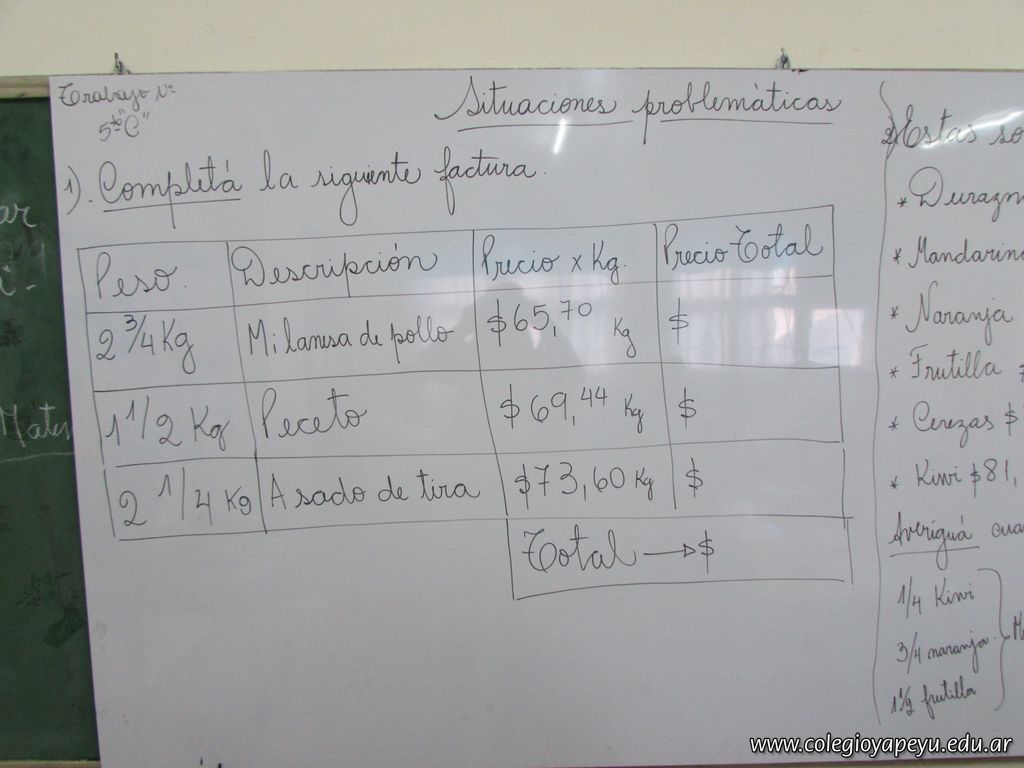 Trabajo N°
5to "C"
Situaciones problemáticas
1). Completá la siguiente factura.
Peso. Descripción Precio x Kg. Precio Total
2 3/4 Kg Milanesa de pollo $65,70 Kg $
1 1/2 Kg Peceto $69,44 Kg $
2 1/4 Kg Asado de tira $73,60 Kg $
Total → $
2) Estas so
* Durazn
* Mandarina
* Naranja
* Frutilla
* Cerezas $
* Kiwi $81,
Averiguá cua
1/4 Kiwi
3/4 naranja.
1 1/2 frutilla
ar
Mate
www.colegioyapeyu.edu.ar